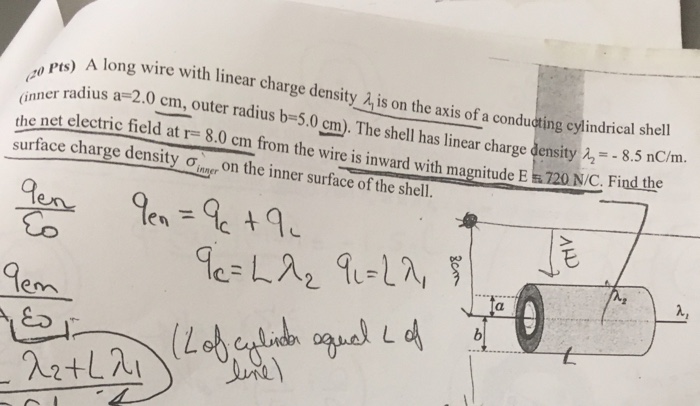 (20 Pts) A long wire with linear charge density λ₁ is on the axis of a conducting cylindrical shell
(inner radius a=2.0 cm, outer radius b=5.0 cm). The shell has linear charge density λ₂ = - 8.5 nC/m.
the net electric field at r= 8.0 cm from the wire is inward with magnitude E = 720 N/C. Find the
surface charge density σinner on the inner surface of the shell.
qen
ε0
qen = qc + qL
qc = Lλ₂ qL = Lλ₁
8cm
E
a
b
λ₂
λ₁
L
qen
ε0
λ2+Lλ1
(L of cylinder equal L of
line)